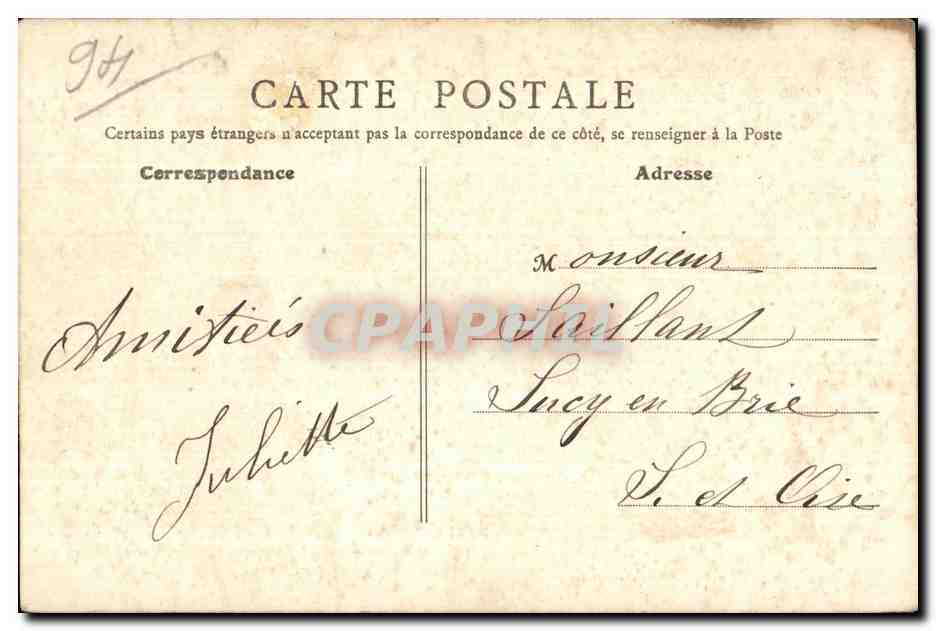 94
CARTE POSTALE
Certains pays étrangers n'acceptant pas la correspondance de ce côté, se renseigner à la Poste
Correspondance
Adresse
Amitiés
Juliette
Monsieur
Saillant
Sucy en Brie
S. et Oise
CPAPHIL